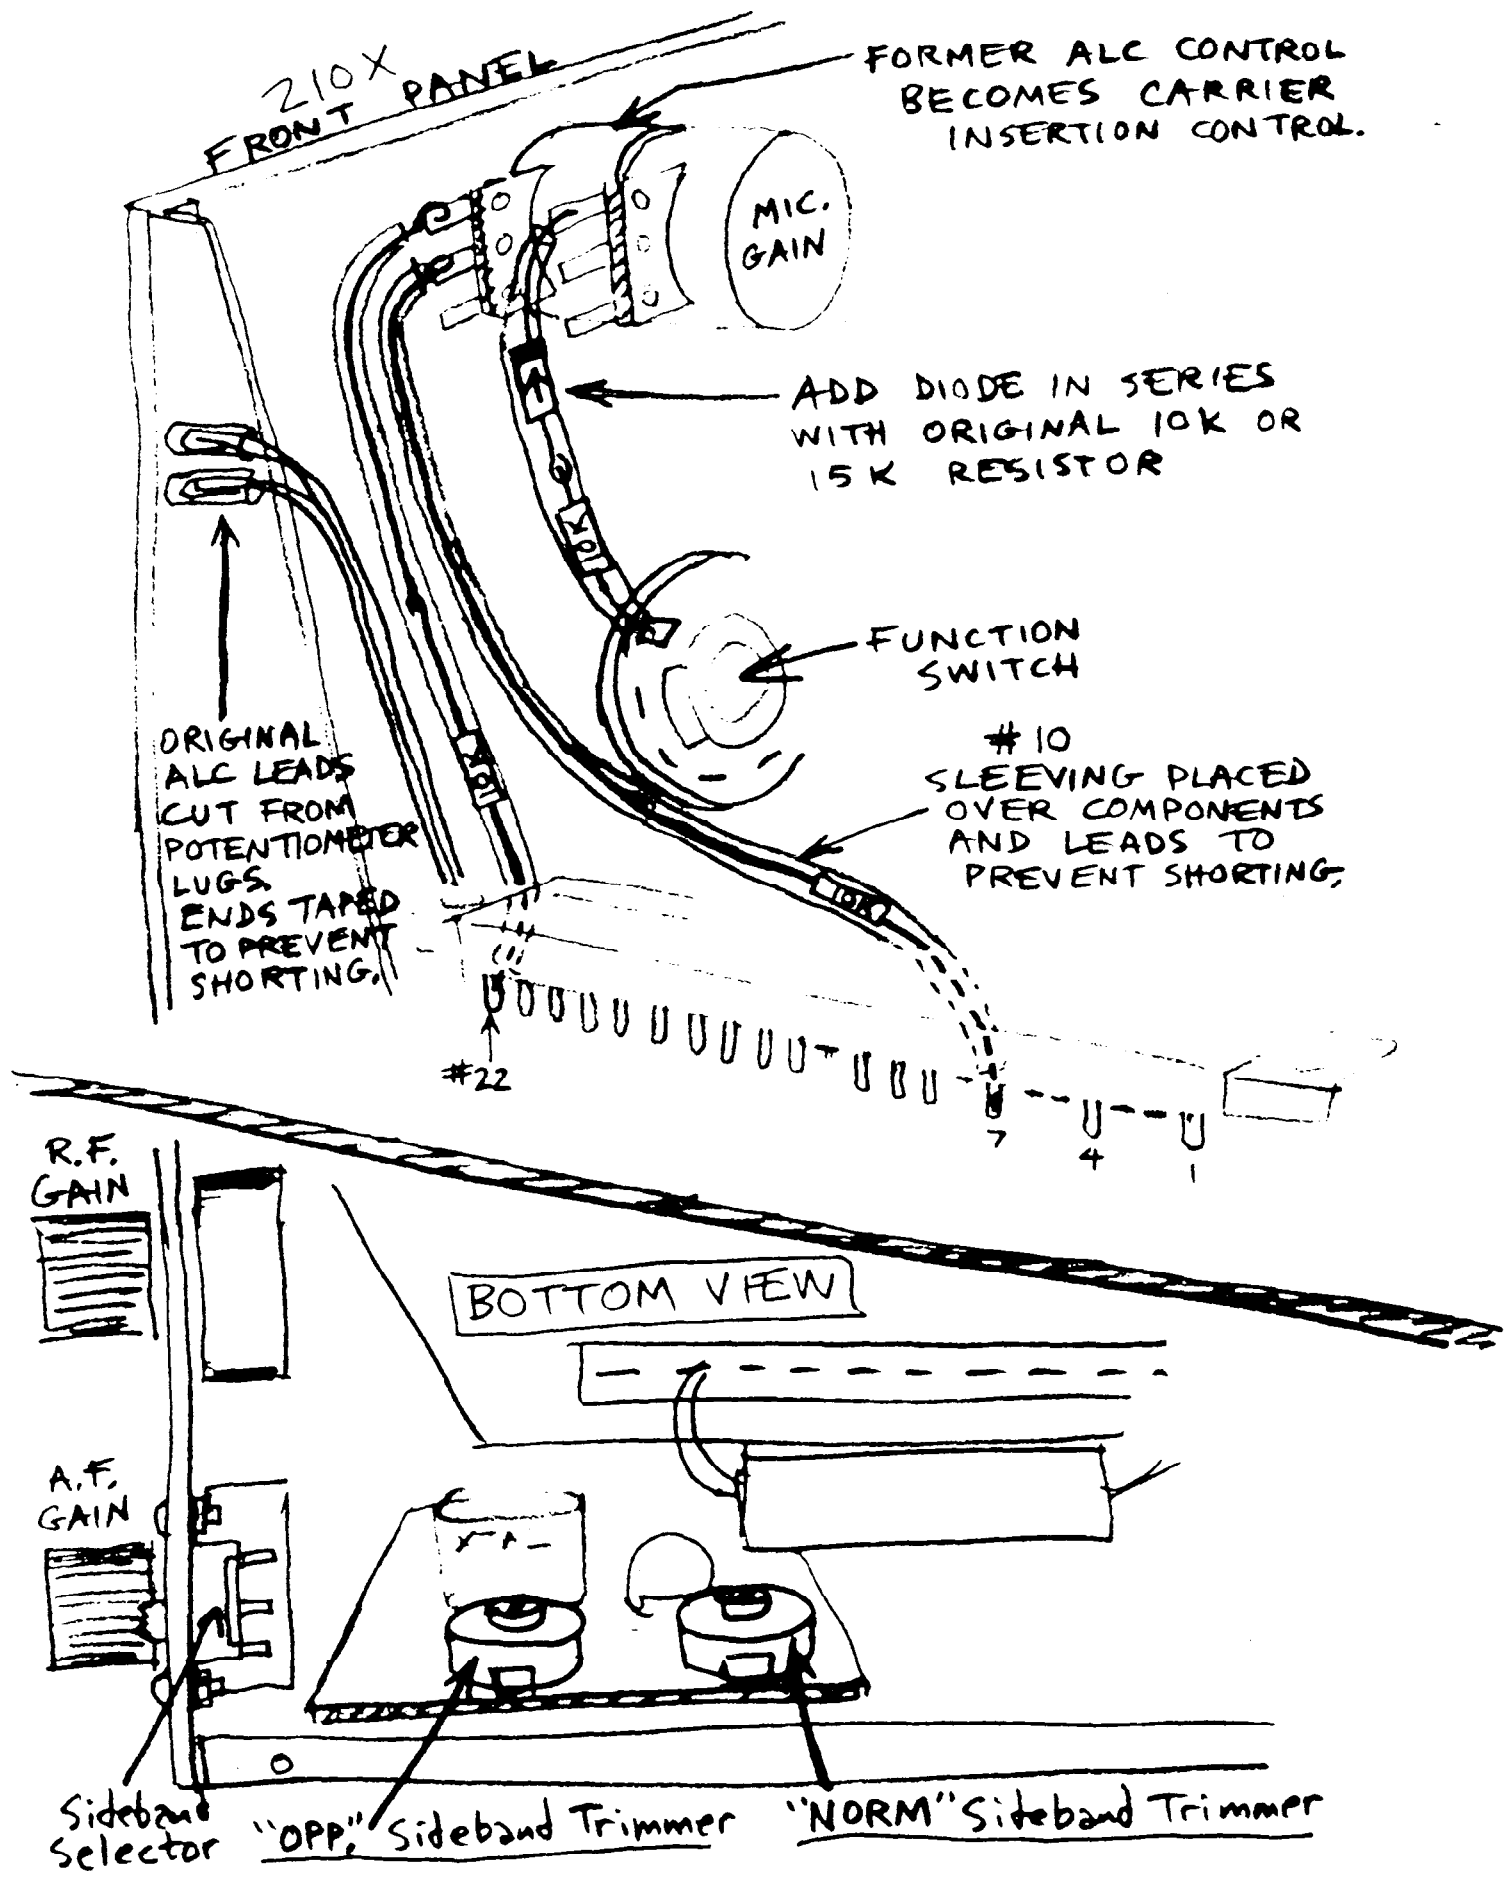 210X
FRONT PANEL
FORMER ALC CONTROL
BECOMES CARRIER
INSERTION CONTROL.
MIC.
GAIN
ADD DIODE IN SERIES
WITH ORIGINAL 10K OR
15K RESISTOR
10K
FUNCTION
SWITCH
ORIGINAL
ALC LEADS
CUT FROM
POTENTIOMETER
LUGS.
ENDS TAPED
TO PREVENT
SHORTING.
10K
#10
SLEEVING PLACED
OVER COMPONENTS
AND LEADS TO
PREVENT SHORTING.
10K
#22
7
4
1
R.F.
GAIN
BOTTOM VIEW
A.F.
GAIN
Sideband
Selector
"OPP." Sideband Trimmer
"NORM" Sideband Trimmer